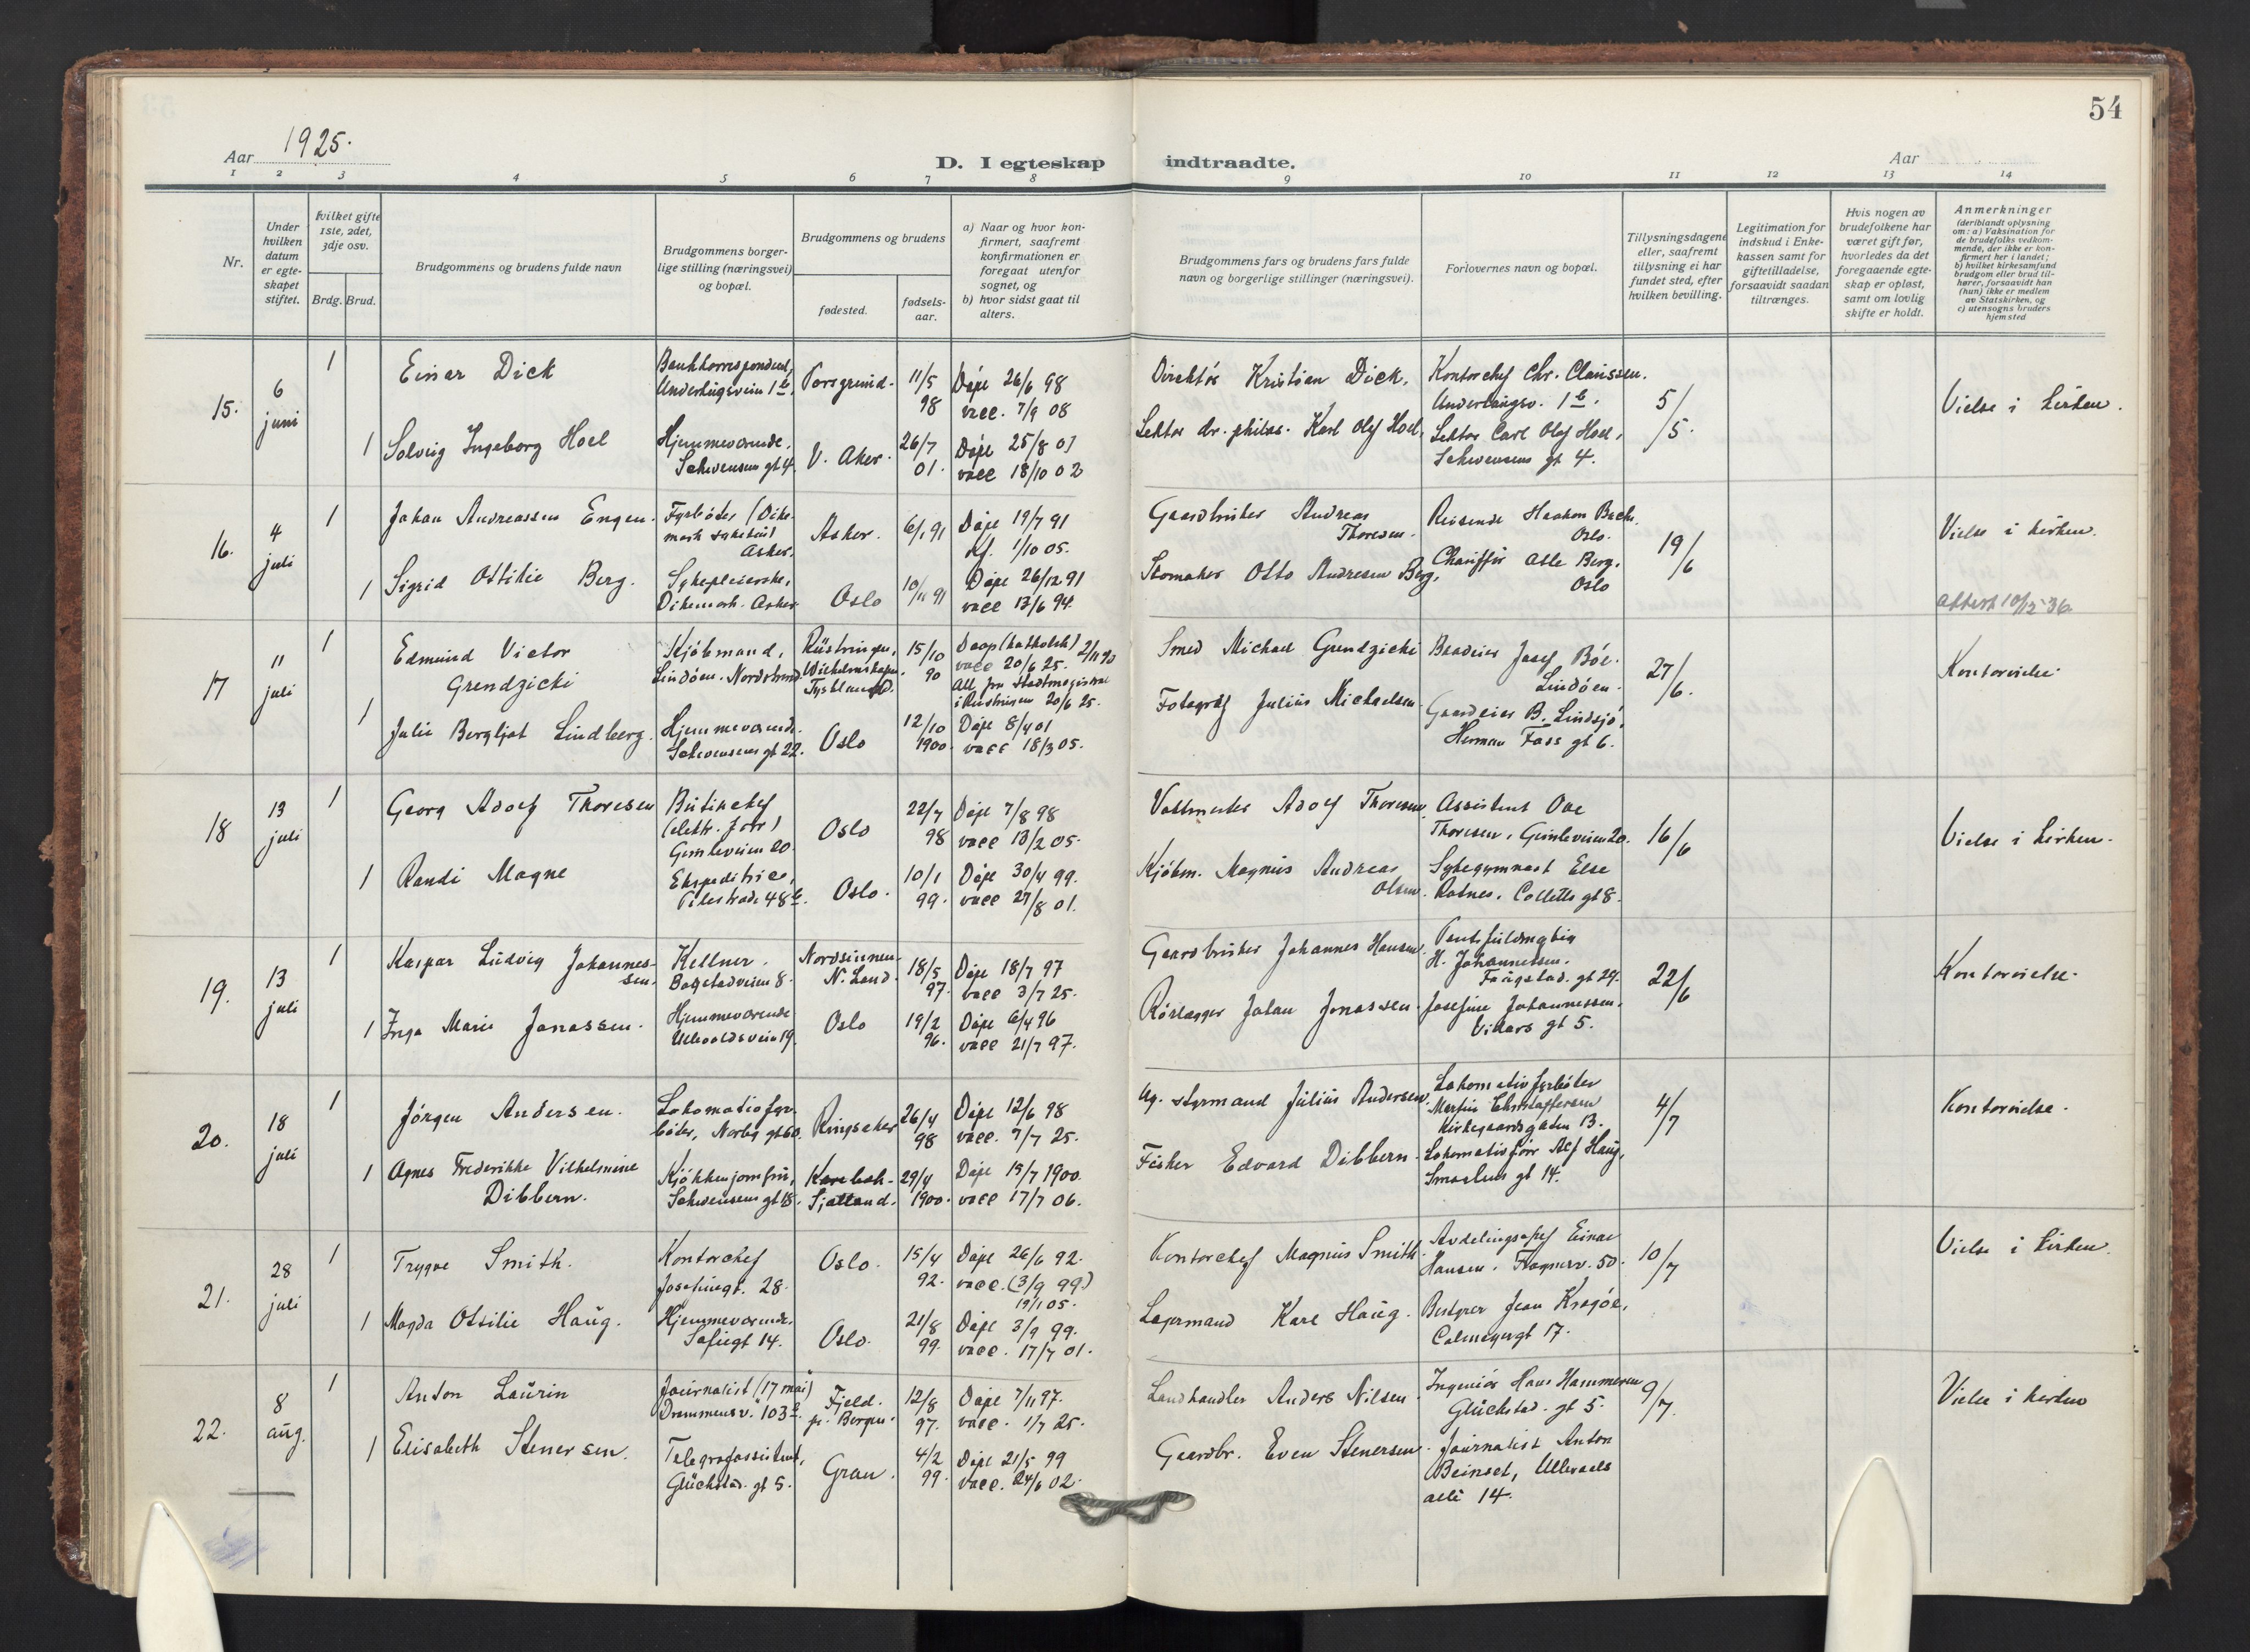 54
Aar 1925.
D. I egteskap indtraadte.
Aar
1 2 3 4 5 6 7 8 9 10 11 12 13 14
Nr.
Under
hvilken
datum
er egte-
skapet
stiftet.
hvilket gifte
1ste, 2det,
3dje osv.
Brdg. Brud.
Brudgommens og brudens fulde navn
Brudgommens borger-
lige stilling (næringsvei)
og bopæl.
Brudgommens og brudens
fødested.
fødsels-
aar.
a) Naar og hvor kon-
firmert, saafremt
konfirmationen er
foregaat utenfor
sognet, og
b) hvor sidst gaat til
alters.
Brudgommens fars og brudens fars fulde
navn og borgerlige stillinger (næringsvei).
Forlovernes navn og bopæl.
Tillysningsdagene
eller, saafremt
tillysning ei har
fundet sted, efter
hvilken bevilling.
Legitimation for
indskud i Enke-
kassen samt for
giftetilladelse,
forsaavidt saadan
tiltrænges.
Hvis nogen av
brudefolkene har
været gift før,
hvorledes da det
foregaaende egte-
skap er opløst,
samt om lovlig
skifte er holdt.
Anmerkninger
(deriblandt oplysning
om: a) Vaksination for
de brudefolks vedkom-
mende, der ikke er kon-
firmert her i landet;
b) hvilket kirkesamfund
brudgom eller brud til-
hører, forsaavidt han
(hun) ikke er medlem
av Statskirken, og
c) utensogns bruders
hjemsted
15.
6
juni
1
Einar Dick
Bankkorrespondent,
Underhaugsveien 1 b.
Porsgrund.
11/5
98
Døpt 26/6 98
vacc. 7/9 08
Direktør Kristian Dick.
Kontorchef Chr. Clausen.
Underhaugsv. 1 b.
5/5.
Vielse i kirken.
1
Solveig Ingeborg Hoel
Hjemmeværende.
Schwensens gt 4.
V. Aker.
26/7
01.
Døpt 25/8 01
vacc 18/10 02
Lektor dr. philos. Karl Olaf Hoel.
Lektor Carl Olaf Hoel,
Schwensens gt 4.
16.
4
juli
1
Johan Andreassen Engen.
Fyrbøter (Dike-
mark sykehus)
Asker.
Asker.
6/1 91
Døpt 19/7 91
Kf. 1/10 05.
Gaardbruker Andreas
Thoresen.
Reisende Haakon Bache.
Oslo.
19/6
Vielse i kirken.
1
Sigrid Ottilie Berg.
Sykepleierske,
Dikemark. Asker
Oslo
10/11 91
Døpt 26/12 91
vacc 13/6 94.
Skomaker Otto Andresen Berg.
Chauffør Asle Berg.
Oslo
attest 10/12 36
17
11
juli
1
Edmund Victor
Grendzicki
Kjøbmand,
Lindøen. Nordstrand
Rüstringen,
Wilhelmshafen.
Tyskland.
15/10
90
Daap (katholsk) 2/11 90
vacc 20/6 25.
Att. fra Stadtmagistrat
i Rüstringen 20/6 25.
Smed Michael Grendzicki
Gaardeier Josef Bøe.
Lindøen.
27/6.
Kontorvielse.
1
Julie Bergljot Lindberg.
Hjemmeværende.
Schwensens gt 22.
Oslo
12/10
1900.
Døpt 8/4 01
vacc 18/3 05.
Fotograf Julius Michaelsen.
Gaardeier B. Lindsjø,
Herman Foss gt 6.
18
13
juli
1
Georg Adolf Thoresen
Butikchef
(elektr. forr)
Gimleveien 20.
Oslo
22/7
98
Døpt 7/8 98
vacc 13/2 05.
Vaktmester Adolf Thoresen.
Assistent Ove
Thoresen, Gimleveien 20.
16/6
Vielse i kirken.
1
Randi Magne
Ekspeditrice,
Pilestrædet 48 b.
Oslo.
10/1
99.
Døpt 30/4 99.
vacc 27/8 01.
Kjøbm. Magnus Andreas
Olsen.
Sykegymnast Else
Ratnes. Colletts gt 8.
19.
13
juli
1
Kaspar Ludvig Johannes-
sen.
Kellner.
Bogstadveien 8.
Nordsinnen.
N. Land.
18/5
97.
Døpt 18/7 97
vacc 3/7 25.
Gaardbruker Johannes Hansen.
H. Johannessen.
Faugstad. gt 29.
22/6
Kontorvielse.
1
Inga Marie Jonassen.
Hjemmeværende
Ullevoldsveien 19.
Oslo
19/2
96.
Døpt 6/4 96
vacc 21/7 97.
Rørlægger Johan Jonassen.
Josefine Johannessen.
Vikars gt 5.
20.
18
juli
1
Jørgen Andersen.
Lokomotivfyr-
bøter, Norbyg gt 60.
Ringsaker
26/4
98
Døpt 12/6 98
vacc. 7/7 25.
Ug. styrmand Julius Andersen.
Lokomotivfyrbøter
Martin Christoffersen
Kirkegaardsgaten 13.
4/7
Kontorvielse.
1
Agnes Frederikke Vilhelmine
Dibbern.
Kjøkkenjomfru,
Schwensens gt 18.
Karebæk-
Sjælland.
29/4
1900.
Døpt 15/7 1900.
vacc 17/7 06.
Fisker Edvard Dibbern.
Lokomotivfører Alf Haug,
Smaalens gt 14.
21.
28
juli
1
Trygve Smith.
Kontorchef
Josefinegt. 28.
Oslo.
15/4
92.
Døpt 26/6 92.
vacc. (3/9 99.)
19/1 05.
Kontorchef Magnus Smith.
Avdelingschef Einar
Hansen. Frognerv. 50.
10/7
Vielse i kirken.
1
Magda Ottilie Haug.
Hjemmeværende.
Sofiegt 14.
Oslo.
21/8
99.
Døpt 3/9 99.
vacc. 17/7 01.
Lagermand Karl Haug.
Bestyrer Jean Kragøe,
Calmeyergt 17.
22.
8
aug.
1
Anton Laurin
Journalist ("17 mai")
Drammensv. 103 b.
Fjeld.
pr. Bergen.
12/8
97.
Døpt 7/11 97.
vacc. 1/7 25.
Landhandler Anders Nilsen.
Ingeniør Hans Hammeren
Glückstad. gt 5.
9/7.
Vielse i kirken
1
Elisabeth Stenersen.
Telegrafassistent,
Glückstad. gt 5.
Gran.
4/2
99.
Døpt 21/5 99
vacc. 24/6 02.
Gaardbr. Even Stenersen.
Journalist Anton
Beinset, Ullevaals
alle 14.